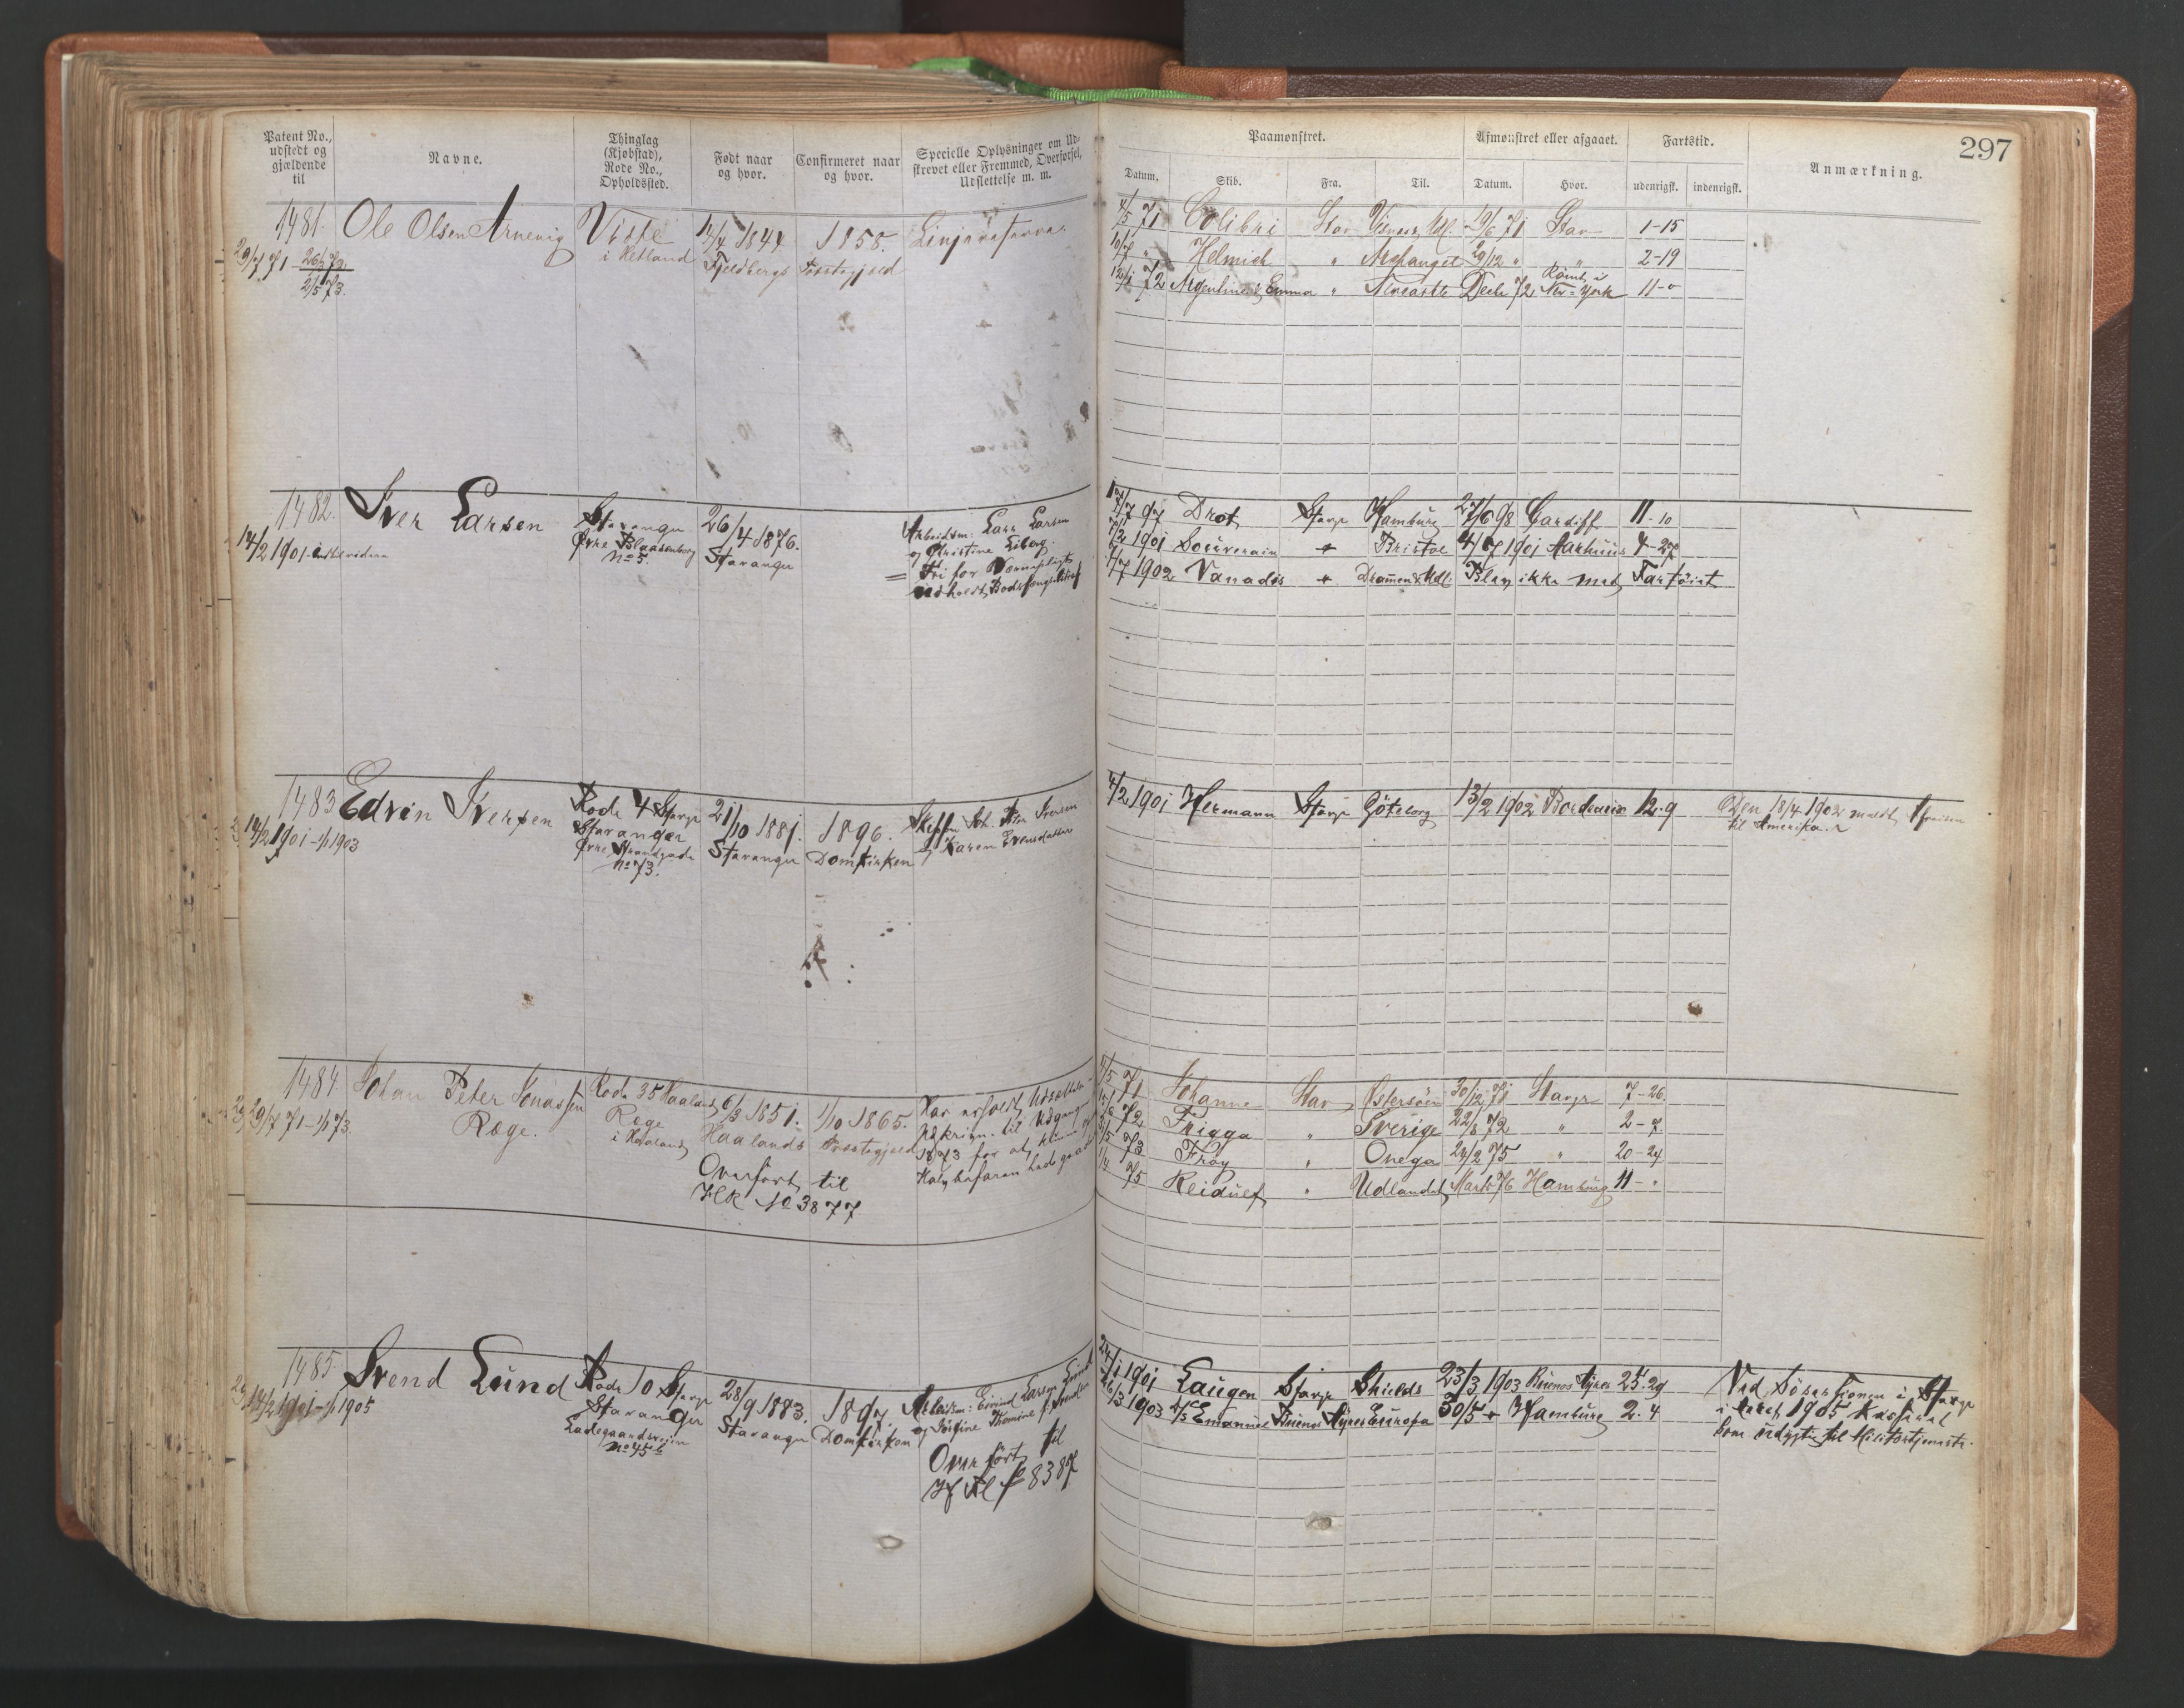 297
Patent No., udstedt og gjældende til
Navne.
Thinglag (Kjøbstad), Rode No., Opholdssted.
Født naar og hvor.
Confirmeret naar og hvor.
Specielle Oplysninger om Udskrevet eller Fremmed, Overførsel, Udslettelse m. m.
Paamønstret.
Afmønstret eller afgaaet.
Fartstid.
Anmærkning.
Datum.
Skib.
Fra.
Til.
Datum.
Hvor.
udenrigsk.
indenrigsk.
1481.
29/7 71
2/5 73.
Ole Olsen Arnevig
Viste
i Hetland
14/4 1844
Fjeldbergs Præstegjæld
1858.
Linjereserve.
4/5 71 Colibri Stav 19/6 71 Stav 1-15
10/7 " Helmich " Archangel 29/12 " " 2-19
12/1 72 Argentine & Emma " Decbr 72 Rømt i New-York 11-0
1482.
14/2 1901-indtil videre
Iver Larsen
Stavanger
Øvre Blaasenborg
No 5.
26/4 1876.
Stavanger
Arbeidsm: Lars Larsen
og Christine
= Fri for Værnepligts
17/7 97 Drot Stavgr Hamburg 27/6 98 Cardiff 11-10
7/2 1901 Souverain + Bristol 4/7 1901 Aarhuus 4-27
1/7 1902 Vanadis + Dramen & Udl. Blev ikke med Fartøiet
1483
14/2 1901-1/1 1903
Edvin Iversen
Rode 4 Stavgr
Stavanger
Øvre Strandgade
No 73.
21/10 1881.
Stavanger
1896.
Domkirken
Skipper Joh. Iversen
og Karen
4/2 1901 Hermann Stavgr Göteborg 13/2 1902 Bordeaux 12-9
Den 18/4 1902 meldt Afreisen
til Amerika.
1484
29/7 71-1/1 73.
Johan Peter Jonassen
Røge.
Rode 35 Haaland
Røge
i Haaland
6/3 1851.
Haalands Præstegjæld
1/10 1865.
Har erholdt Udsættelse
Udskrivn. til Udgangen
1873 for at kunne
Overført til
HR No 3877
11/5 71 Johanne Stav Østersøen 30/12 71 Stavgr 7-26.
15/6 72 Frigga " Sverige 22/8 72 " 2-7.
3/5 73 Frøy " Onega 24/2 75 " 20-24
1/4 75 Reidulf " Udlandet Marts 76 Hamburg 11-"
1485.
14/2 1901-1/1 1905
Svend Lund
Rode 10 Stavgr
Stavanger
Ladegaardsveien
No 45 b
28/9 1883.
Stavanger
1897.
Domkirken
Arbeidsm: Eivind Larsen Lund
Overført til
8387
24/1 1901 Laugen Stavgr Shields 23/3 1903 Buenos Ayres 25-29
26/3 1903 Emanuel Buenos Ayres Europa 30/5 + Hamburg 2-4
Ved Sessionen i Stavgr
i Aaret 1905 kasseret
som udygtig til Militærtjeneste.